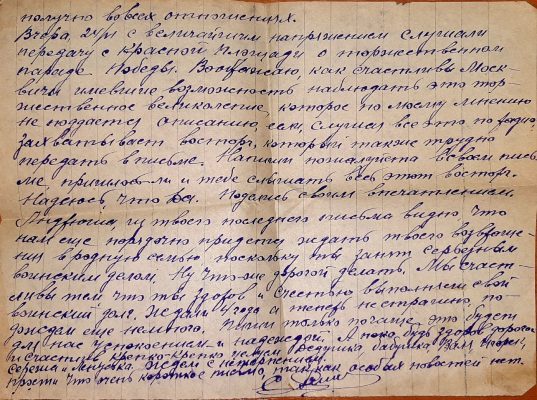 получно во всех отношениях.
Вчера, 24/VI с величайшим напряжением слушали
передачу с Красной площади о торжественном
параде Победы. Воображаю, как счастливы Моск-
вичи имевшие возможность наблюдать это тор-
жественное великолепие, которое по моему мнению
не поддается описанию, если, слушая все это по радио,
захватывает восторг, который также трудно
передать в письме. Напиши пожалуйста в своем пись
ме, пришлось ли и тебе слышать весь этот восторг.
Надеюсь, что да. Поделись своим впечатлением.
из твоего последнего письма видно, что
нам еще порядочно придется ждать твоего возвраще-
ния в родную семью поскольку ты занят серьезным
воинским делом. Ну что же дорогой делать, Мы счаст-
ливы тем что ты здоров и с честью выполняешь свой
воинский долг. Ждали 4 года а теперь не страшно, по-
дождем еще немного. Пиши только почаще, это будет
для нас успокоением и надеждой. А пока будь здоров дорогой
и счастлив крепко-крепко целуем Дедушка, бабушка, Валя,
Сережа и Ждем с нетерпением.
прости что очень короткое письмо, так как особых новостей нет.